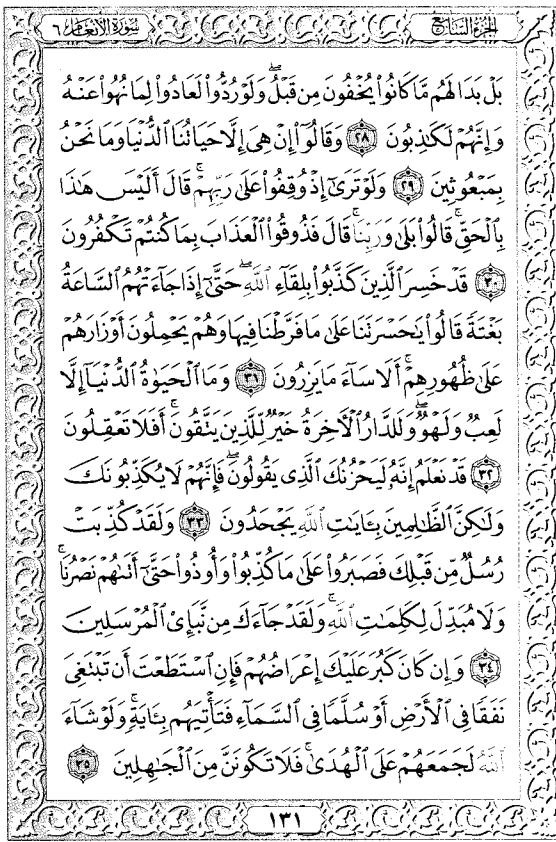 الجزء السابع
سورة الأنعام ٦
بَلْ بَدَا لَهُم مَّا كَانُوا۟ يُخْفُونَ مِن قَبْلُ ۖ وَلَوْ رُدُّوا۟ لَعَادُوا۟ لِمَا نُهُوا۟ عَنْهُ
وَإِنَّهُمْ لَكَٰذِبُونَ ٢٨ وَقَالُوٓا۟ إِنْ هِىَ إِلَّا حَيَاتُنَا ٱلدُّنْيَا وَمَا نَحْنُ
بِمَبْعُوثِينَ ٢٩ وَلَوْ تَرَىٰٓ إِذْ وُقِفُوا۟ عَلَىٰ رَبِّهِمْ ۚ قَالَ أَلَيْسَ هَٰذَا
بِٱلْحَقِّ ۚ قَالُوا۟ بَلَىٰ وَرَبِّنَا ۚ قَالَ فَذُوقُوا۟ ٱلْعَذَابَ بِمَا كُنتُمْ تَكْفُرُونَ
٣٠ قَدْ خَسِرَ ٱلَّذِينَ كَذَّبُوا۟ بِلِقَآءِ ٱللَّهِ ۖ حَتَّىٰٓ إِذَا جَآءَتْهُمُ ٱلسَّاعَةُ
بَغْتَةً قَالُوا۟ يَٰحَسْرَتَنَا عَلَىٰ مَا فَرَّطْنَا فِيهَا وَهُمْ يَحْمِلُونَ أَوْزَارَهُمْ
عَلَىٰ ظُهُورِهِمْ ۚ أَلَا سَآءَ مَا يَزِرُونَ ٣١ وَمَا ٱلْحَيَوٰةُ ٱلدُّنْيَآ إِلَّا
لَعِبٌ وَلَهْوٌ ۖ وَلَلدَّارُ ٱلْءَاخِرَةُ خَيْرٌ لِّلَّذِينَ يَتَّقُونَ ۗ أَفَلَا تَعْقِلُونَ
٣٢ قَدْ نَعْلَمُ إِنَّهُۥ لَيَحْزُنُكَ ٱلَّذِى يَقُولُونَ ۖ فَإِنَّهُمْ لَا يُكَذِّبُونَكَ
وَلَٰكِنَّ ٱلظَّٰلِمِينَ بِـَٔايَٰتِ ٱللَّهِ يَجْحَدُونَ ٣٣ وَلَقَدْ كُذِّبَتْ
رُسُلٌ مِّن قَبْلِكَ فَصَبَرُوا۟ عَلَىٰ مَا كُذِّبُوا۟ وَأُوذُوا۟ حَتَّىٰٓ أَتَىٰهُمْ نَصْرُنَا ۚ
وَلَا مُبَدِّلَ لِكَلِمَٰتِ ٱللَّهِ ۚ وَلَقَدْ جَآءَكَ مِن نَّبَإِى۟ ٱلْمُرْسَلِينَ
٣٤ وَإِن كَانَ كَبُرَ عَلَيْكَ إِعْرَاضُهُمْ فَإِنِ ٱسْتَطَعْتَ أَن تَبْتَغِىَ
نَفَقًا فِى ٱلْأَرْضِ أَوْ سُلَّمًا فِى ٱلسَّمَآءِ فَتَأْتِيَهُم بِـَٔايَةٍ ۚ وَلَوْ شَآءَ
ٱللَّهُ لَجَمَعَهُمْ عَلَى ٱلْهُدَىٰ ۚ فَلَا تَكُونَنَّ مِنَ ٱلْجَٰهِلِينَ ٣٥
١٣١